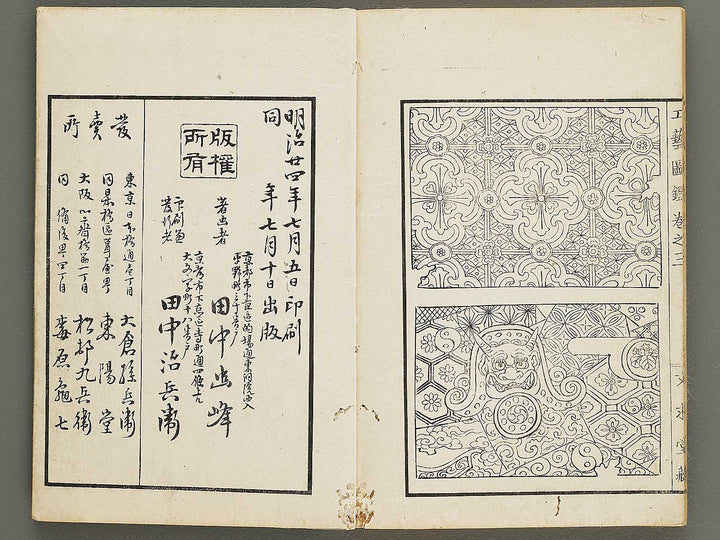 工藝圖鑑 巻之三
文求堂藏
明治廿四年七月五日印刷
同 年七月十日出版
版權
所有
著畫者
京都市下京區的場通東洞院西入
田中幽峰
印刷兼
發行者
京都市下京區寺町通四條上ル
田中治兵衛
發賣所
東京日本橋通壱丁目
大倉孫兵衛
東陽堂
大阪心斎橋筋一丁目
松邨九兵衛
同 備後町四丁目
梅原亀七